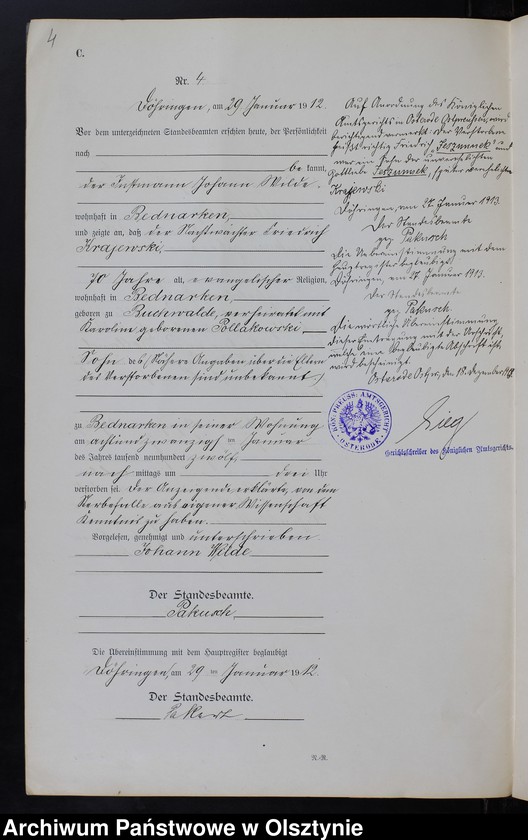 4
C.
Nr. 4
Döhringen, am 29 Januar 1912.
Vor dem unterzeichneten Standesbeamten erschien heute, der Persönlichkeit
nach
bekannt,
der Instmann Johann Wilde.
wohnhaft in Bednarken,
und zeigte an, daß der Nachtwächter Friedrich
Krajewski,
70 Jahre alt, evangelischer Religion,
wohnhaft in Bednarken,
geboren zu Buchwalde, verheiratet mit
Karoline geborenen Pollakowski,
Sohn des (Nähere Angaben über die Eltern
des Verstorbenen sind unbekannt)
zu Bednarken in seiner Wohnung
am achtundzwanzigsten Januar
des Jahres tausend neunhundert zwölf,
nachmittags um drei Uhr
verstorben sei. Der Anzeigende erklärte, von dem
Sterbefalle aus eigener Wissenschaft
Kenntnis zu haben.
Vorgelesen, genehmigt und unterschrieben
Johann Wilde
Der Standesbeamte.
Pakusch
Die Übereinstimmung mit dem Hauptregister beglaubigt
Döhringen, am 29 ten Januar 1912.
Der Standesbeamte.
N.-R.
Auf Anordnung des Königlichen
Amtsgerichts in Osterode Ostpreußen wird
berichtigend vermerkt: Der Verstorbene
heißt richtig Friedrich "Jeszunnek" und
war ein Sohn der unverehelichten
Gottliebe Jeszunnek, später verehelichten
Krajewski
Döhringen, am Januar 1913.
Der Standesbeamte
gez. Pakusch
Die Übereinstimmung mit dem
Hauptregister beglaubigt
Döhringen, am Januar 1913.
Der Standesbeamte
gez. Pakusch.
Die wörtliche Übereinstimmung
dieser Eintragung mit der Vorschrift,
welche eine beglaubigte Abschrift ist,
wird bescheinigt
Osterode Ostpr, den 18. Dezember
KÖN. PREUSS. AMTSGERICHT
OSTERODE
Gerichtsschreiber des Königlichen Amtsgerichts.
Archiwum Państwowe w Olsztynie